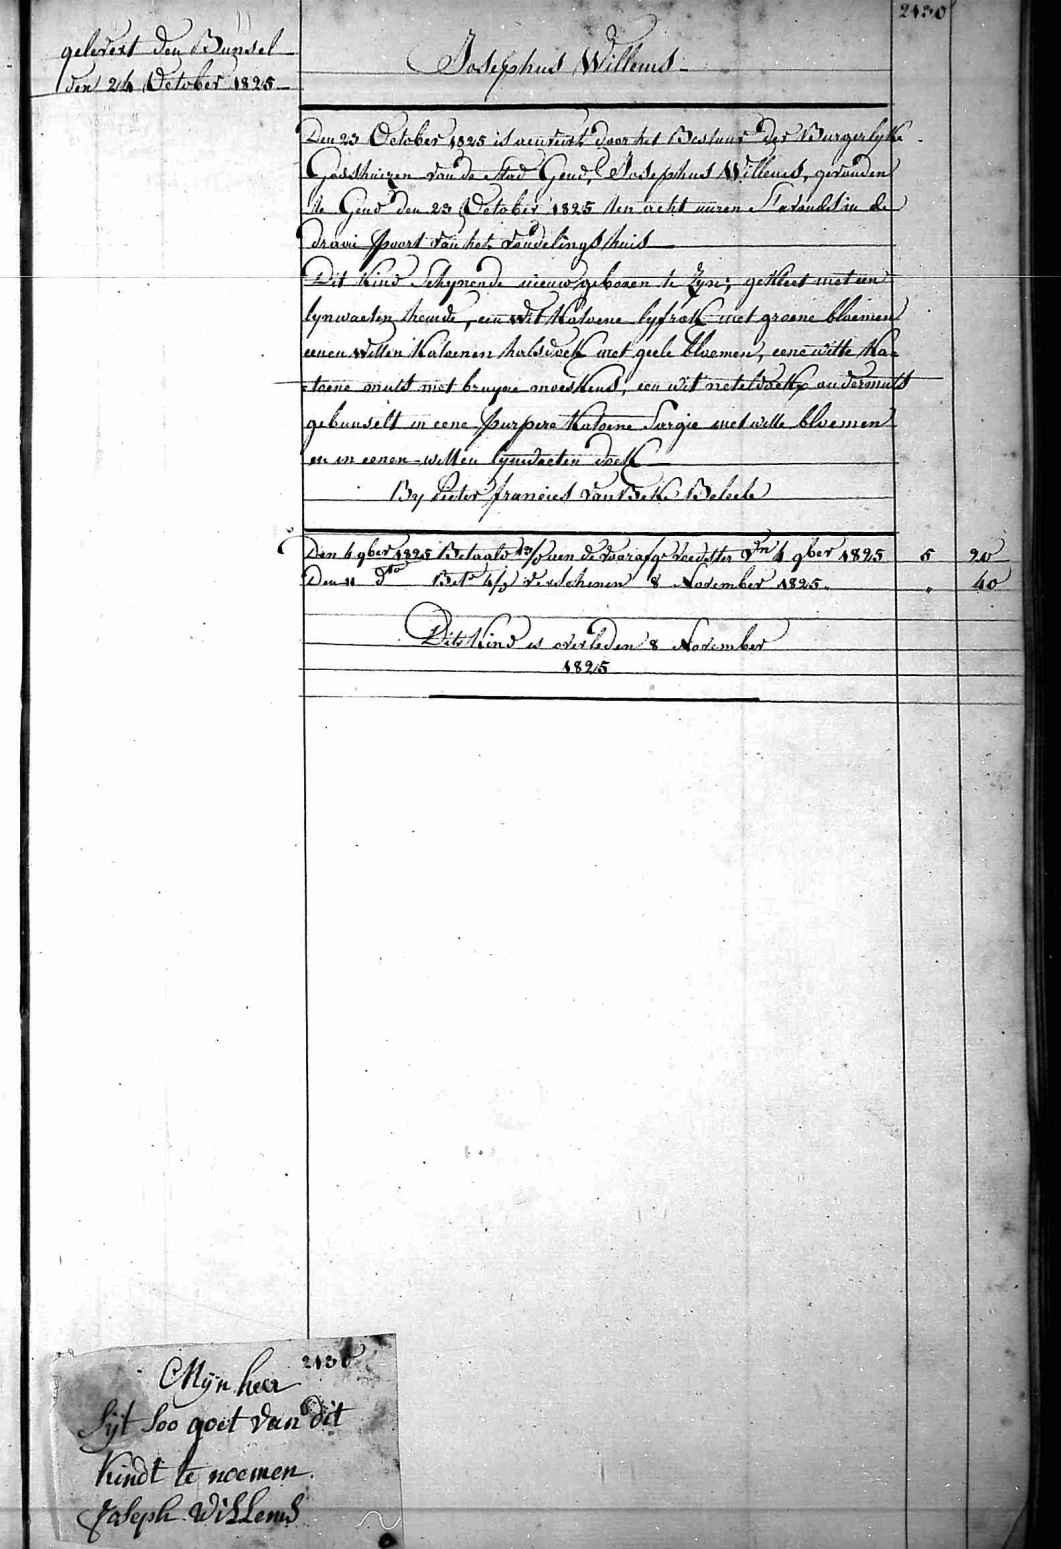 2430
gelevert den Bunsel
den 24 October 1825
Josephus Willems
Den 23 October 1825 is aenveirt door het Bestuur der Burgerlyke
Godshuizen van de Stad Gend, Josephus Willems, gevonden
te Gend den 23 October 1825 ten acht uuren s'avonds in de
draai poort van het vondelings huis
Dit Kind Schynende nieuw geboren te zyn; gekleet met een
lynwaeten hemde, een wit Katoene lyfrok met groene bloemen
eenen witten Katoenen halsdoek met geele bloemen, eene witte Ka=
=toene muts met bruyne moeskens, een wit neteldoekx ondermuts
gebunselt in eene purpere Katoene Sargie met witte bloemen
en in eenen witten lynwaeten doek
By Pieter francies van Beke Beleele
Den 4 9ber 1825 Betaald aen de voorafge voedster 4 9ber 1825 5 20
Den 11 dto Bete verschenen 8 November 1825 " 40
Dit Kind is overleden 8 November
1825
2430
Mijn heer
Sijt soo goet van dit
Kindt te noemen
Joseph Willems